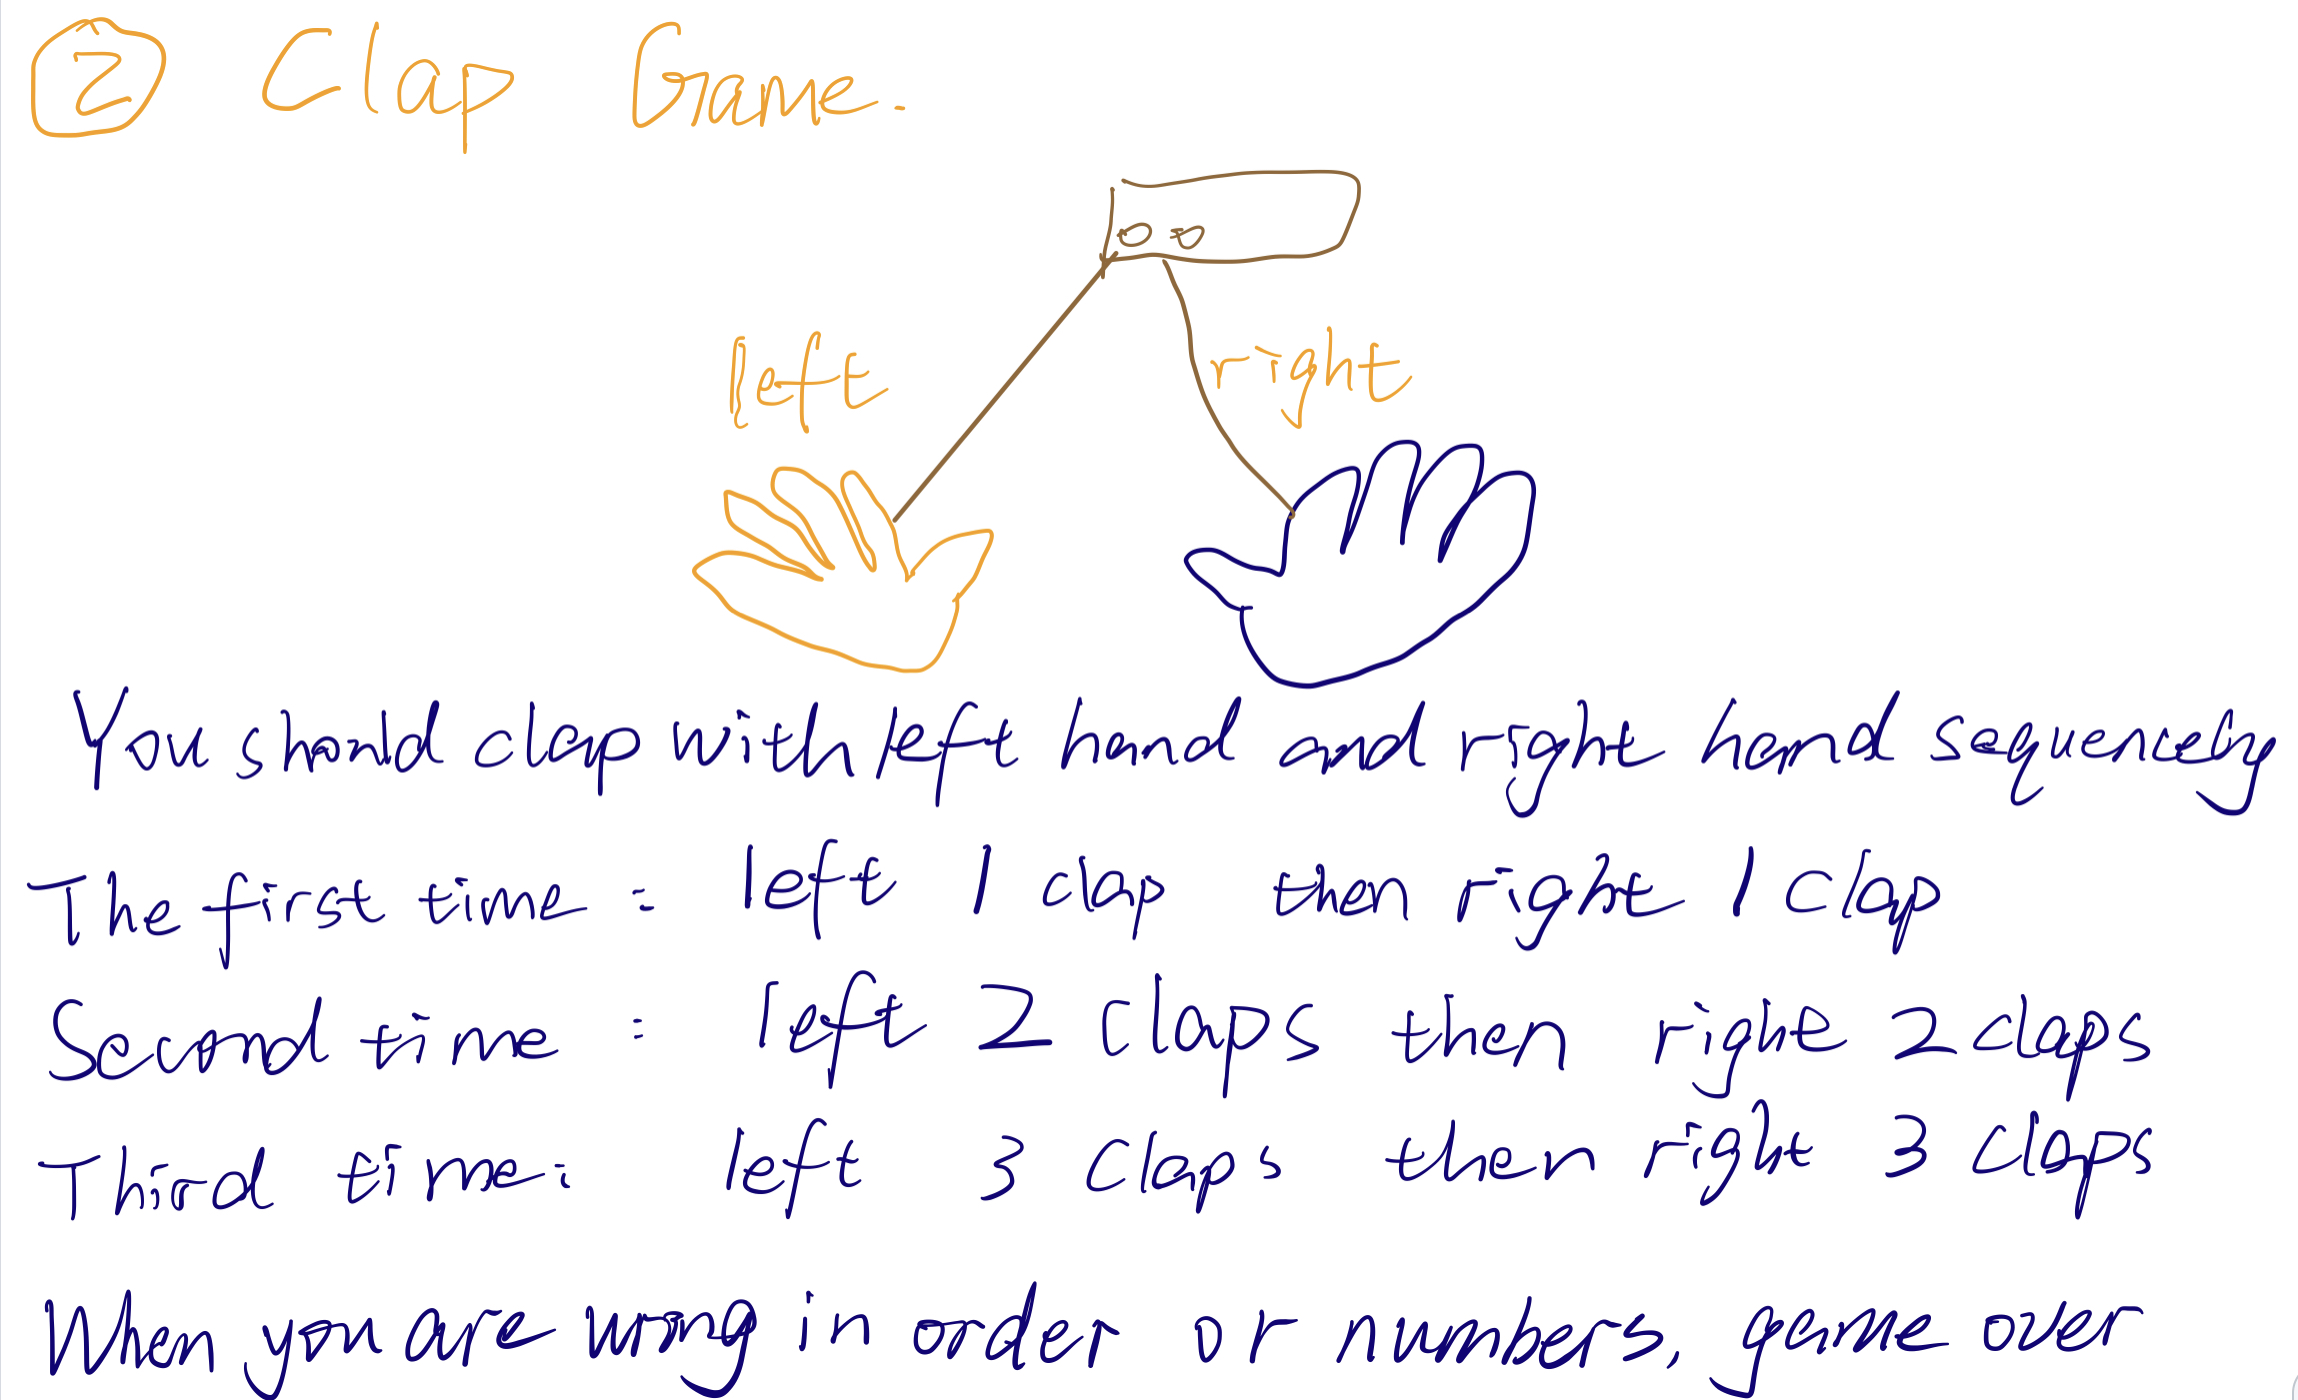 2 Clap Game.
left
right
You should clap with left hand and right hand sequencely
The first time : left 1 clap then right 1 clap
Second time : left 2 claps then right 2 claps
Third time : left 3 claps then right 3 claps
When you are wrong in order or numbers, game over